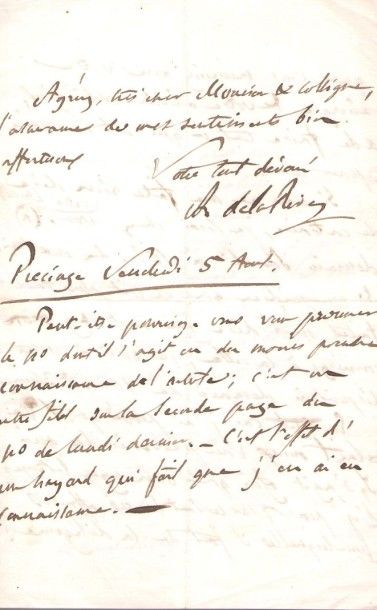 Agréez, très cher Monsieur & collègue,
l'assurance de mes sentiments bien
affectueux
Votre tout dévoué
A de la Rive
Presinge Vendredi 5 Aout.
Peut-être pourriez vous vous procurer
le no dont il s'agit ou du moins prendre
connaissance de l'article; c'est un
entrefilet sur la seconde page du
no de lundi dernier. – C'est l'effet d'
un hazard qui fait que j'en ai eu
connaissance. —